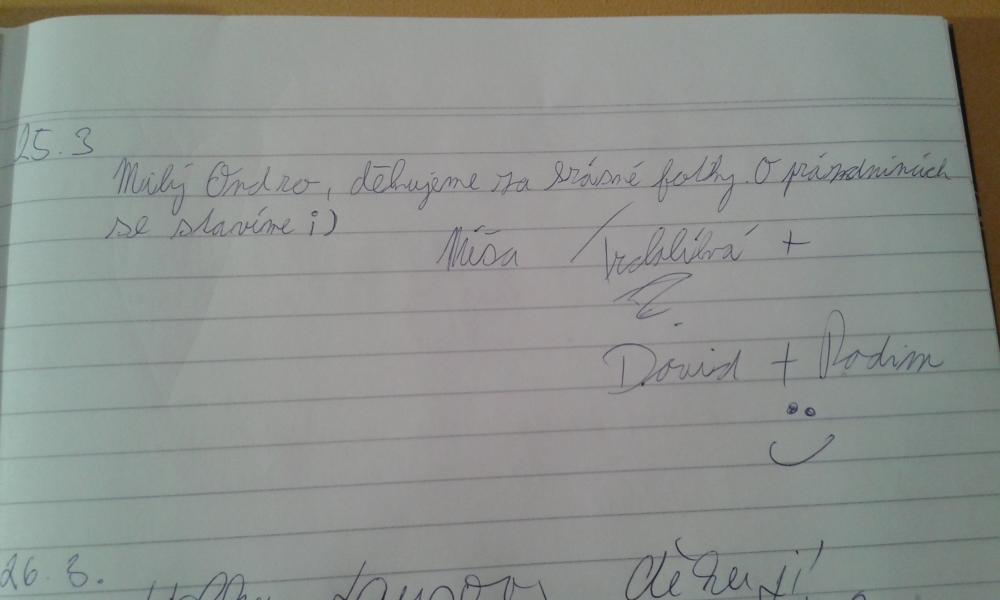 25.3
Milý Ondro, děkujeme za krásné fotky. O prázdninách
se stavíme ;)
Míša +
David + Radim
26.3.
děkuji